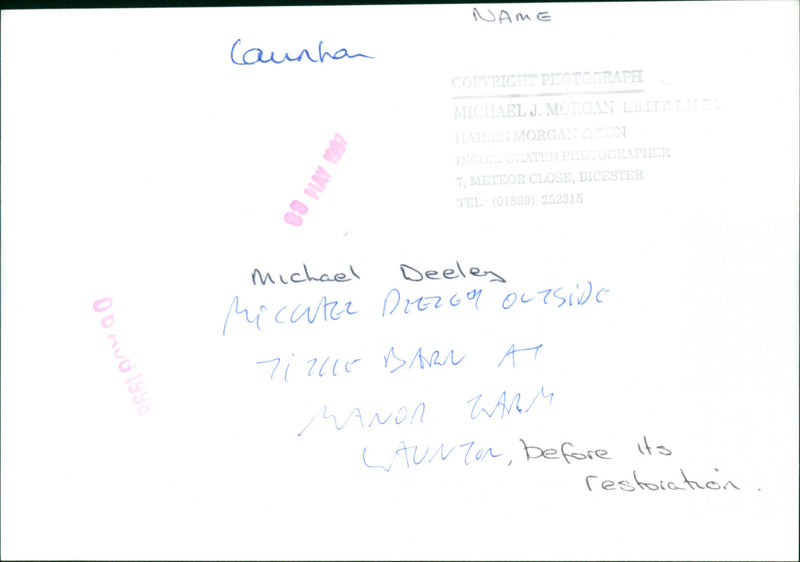 NAME
Launton
COPYRIGHT PHOTOGRAPH
MICHAEL J. MORGAN
HARRIS MORGAN & SON
INCORPORATED PHOTOGRAPHER
7, METEOR CLOSE, BICESTER
TEL: (01869) 252315
08 MAY 1997
Michael Deeley
MICHAEL DEELEY OUTSIDE
TITHE BARN AT
MANOR FARM
LAUNTON, before its
restoration.